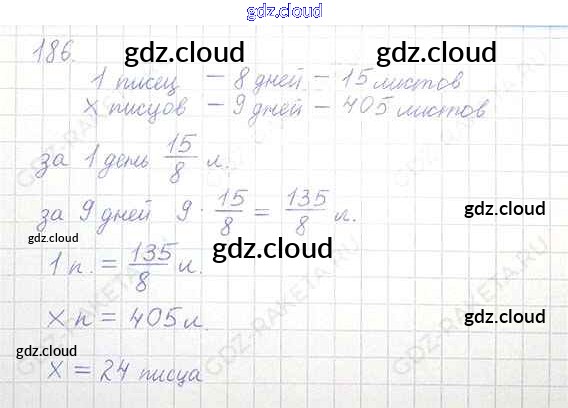 gdz.cloud
186.
gdz.cloud gdz.cloud
1 писец – 8 дней – 15 листов
x писцов – 9 дней – 405 листов
за 1 день 15/8 л.
за 9 дней 9 · 15/8 = 135/8 л.
gdz.cloud
gdz.cloud
gdz.cloud
1 п. = 135/8 л.
x п = 405 л.
gdz.cloud gdz.cloud
x = 24 писца
GDZ-RAKETA.RU